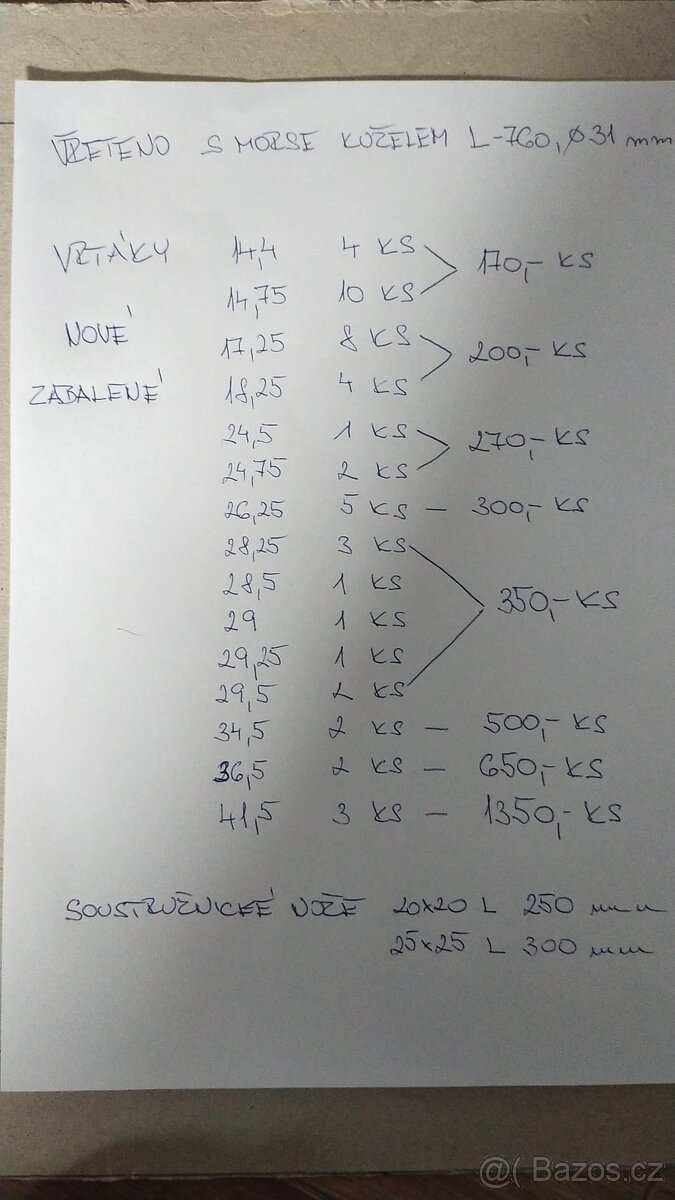 VŘETENO S MORSE KUŽELEM L-760, Ø31 mm
VRTÁKY 14,4 4 KS 170,- KS
14,75 10 KS
NOVÉ 17,25 8 KS 200,- KS
ZABALENÉ 18,25 4 KS
24,5 1 KS 270,- KS
24,75 2 KS
26,25 5 KS — 300,- KS
28,25 3 KS
28,5 1 KS 350,- KS
29 1 KS
29,25 1 KS
29,5 2 KS
34,5 2 KS — 500,- KS
36,5 2 KS — 650,- KS
41,5 3 KS — 1350,- KS
SOUSTRUŽNICKÉ NOŽE 20x20 L 250 mm
25x25 L 300 mm
@( Bazos.cz